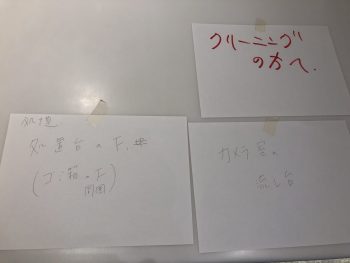 クリーニング
の方へ.
処置
処置台の下.
(ゴミ箱の下
周囲)
カメラ室の
流し台